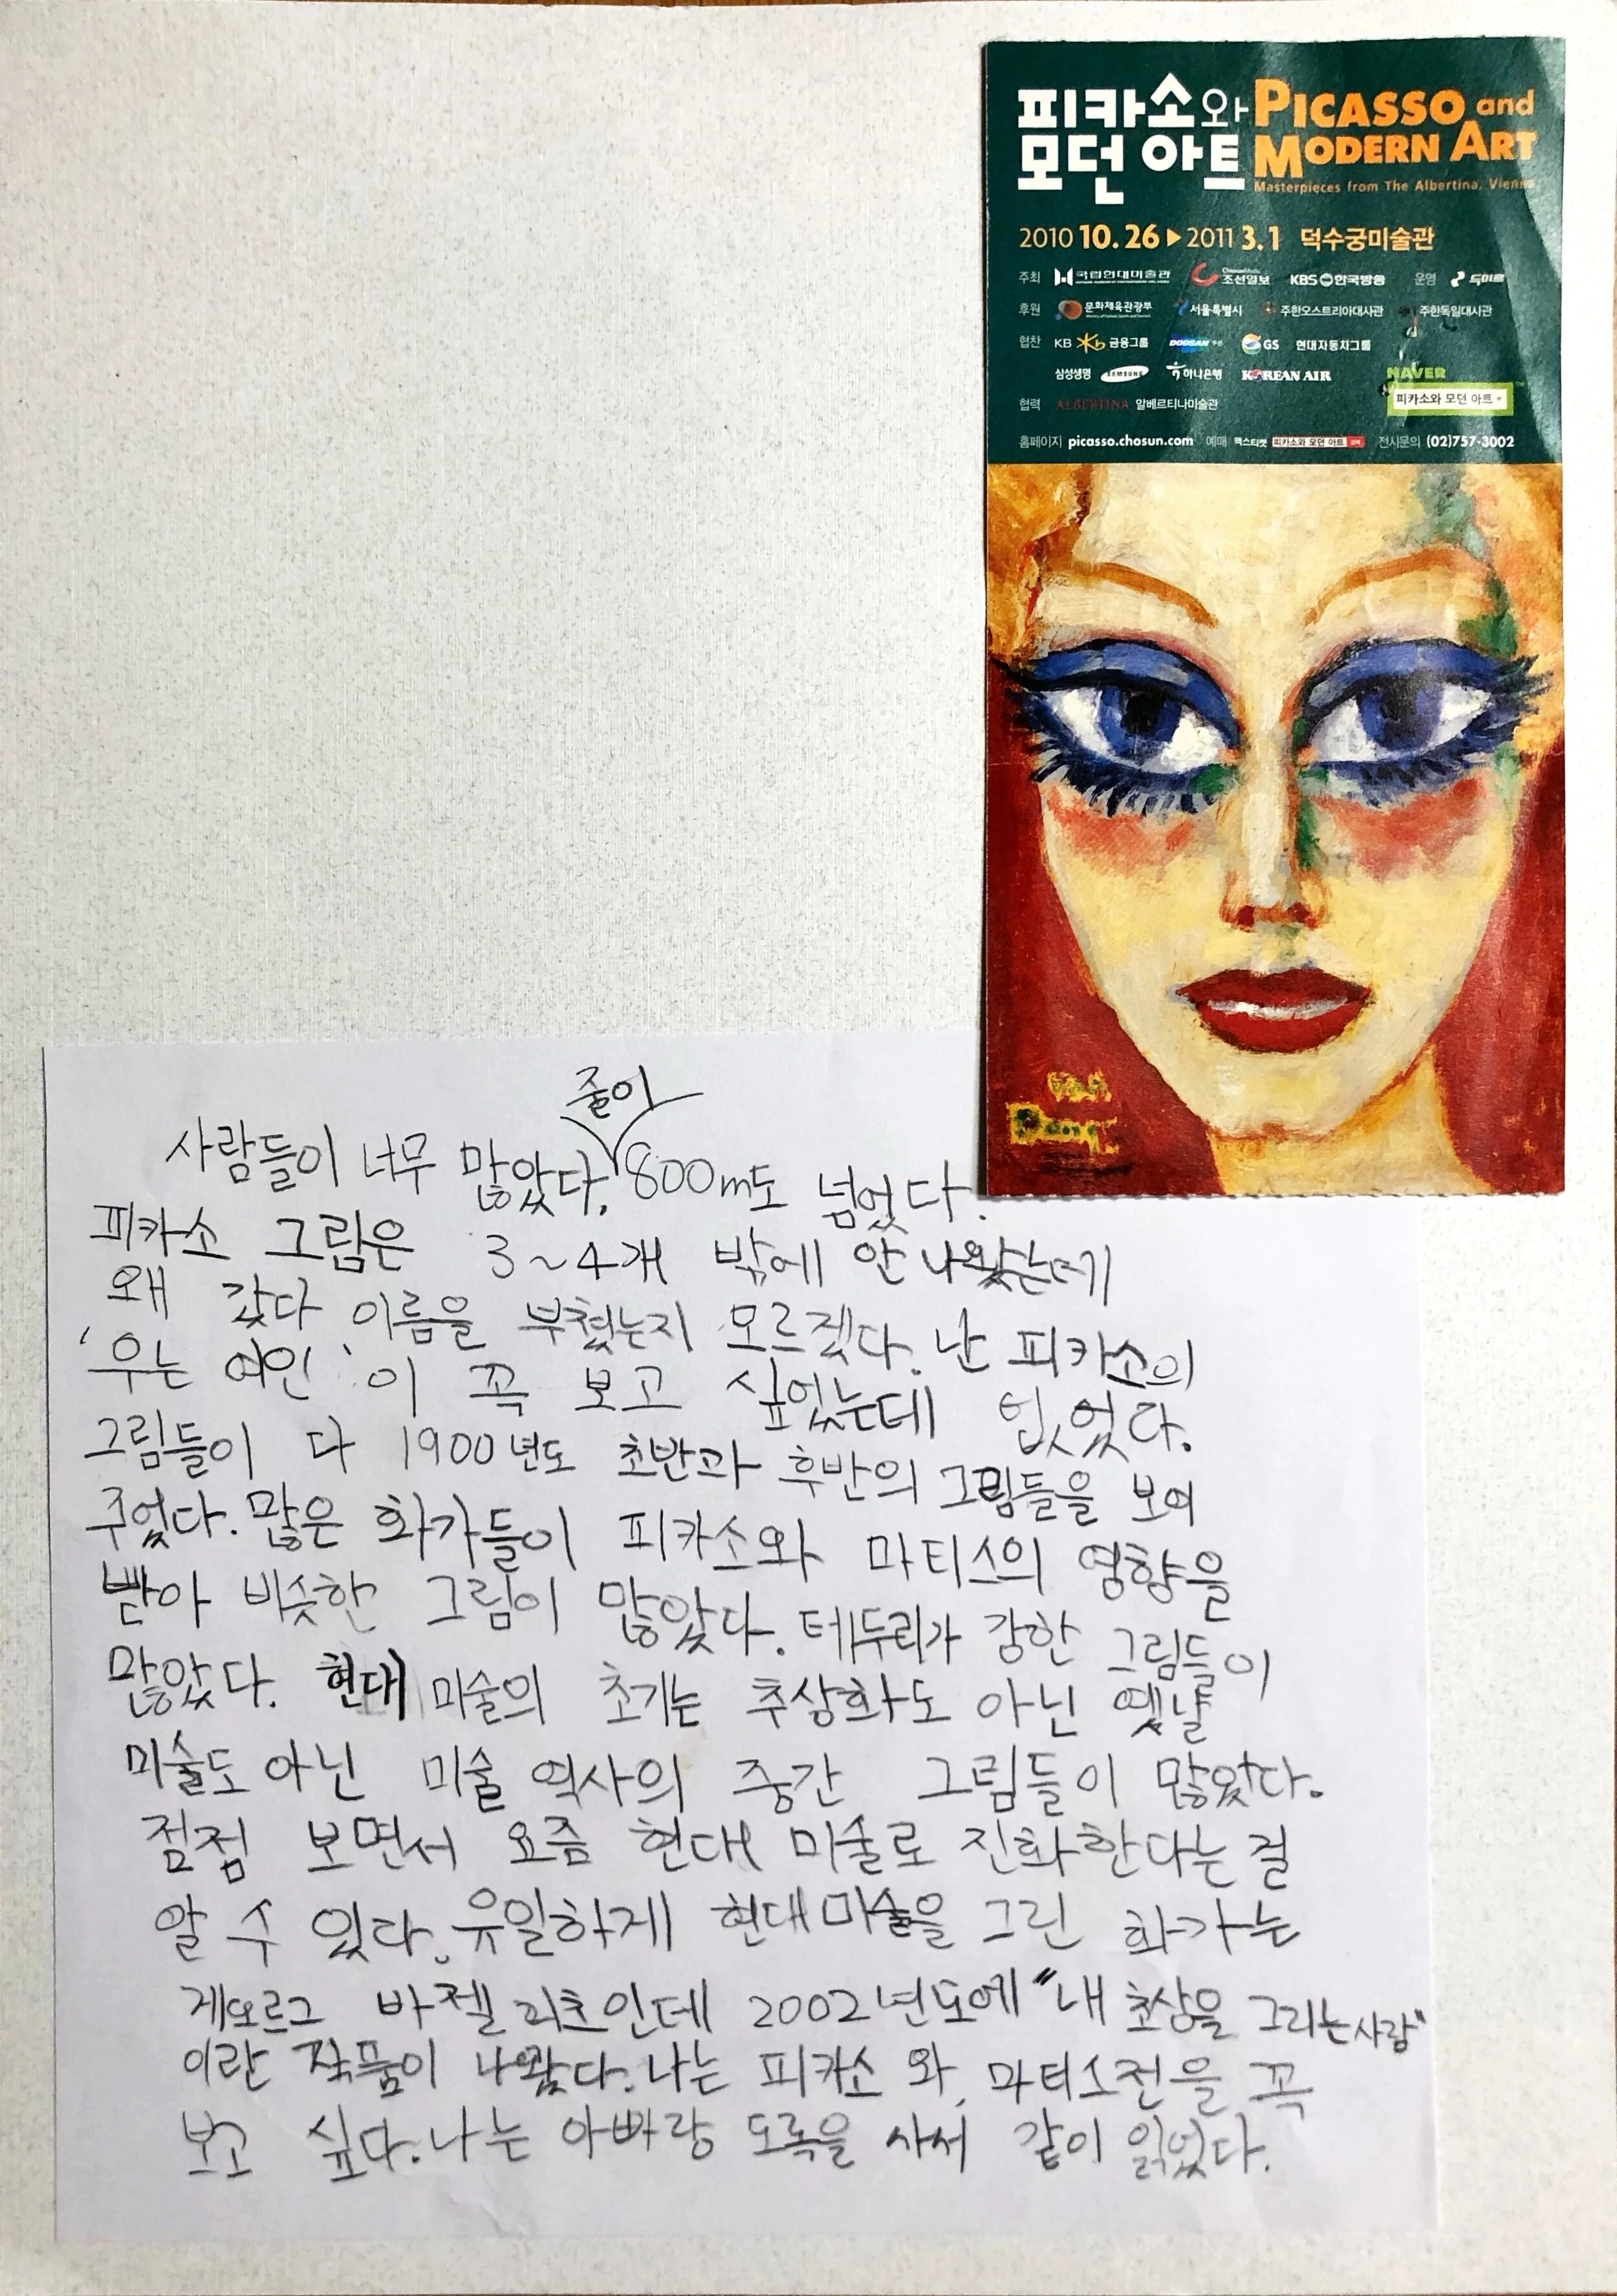 피카소와 PICASSO and
모던 아트 MODERN ART
Masterpieces from The Albertina, Vienna
2010 10.26 ▶ 2011 3.1 덕수궁미술관
주최 국립현대미술관 조선일보 KBS 한국방송 운영
후원 문화체육관광부 서울특별시 주한오스트리아대사관 주한독일대사관
협찬 KB 금융그룹 DOOSAN 두산 GS 현대자동차그룹
삼성생명 SAMSUNG 하나은행 KOREAN AIR NAVER
피카소와 모던 아트
협력 ALBERTINA 알베르티나미술관
홈페이지 picasso.chosun.com 예매 맥스티켓 피카소와 모던 아트 전시문의 (02)757-3002
줄이
사람들이 너무 많았다. 800m도 넘었다.
피카소 그림은 3~4개 밖에 안 나왔는데
왜 갖다 이름을 부쳤는지 모르겠다. 난 피카소의
'우는 여인'이 꼭 보고 싶었는데 없었다.
그림들이 다 1900년도 초반과 후반의 그림들을 보여
주었다. 많은 화가들이 피카소와 마티스의 영향을
받아 비슷한 그림이 많았다. 테두리가 강한 그림들이
많았다. 현대 미술의 초기는 추상화도 아닌 옛날
미술도 아닌 미술 역사의 중간 그림들이 많았다.
점점 보면서 요즘 현대 미술로 진화한다는 걸
알 수 있다. 유일하게 현대미술을 그린 화가는
게오르그 바젤리츠인데 2002년도에 "내 초상을 그리는 사람"
이란 작품이 나왔다. 나는 피카소와 마티스전을 꼭
보고 싶다. 나는 아빠랑 도록을 사서 같이 읽었다.